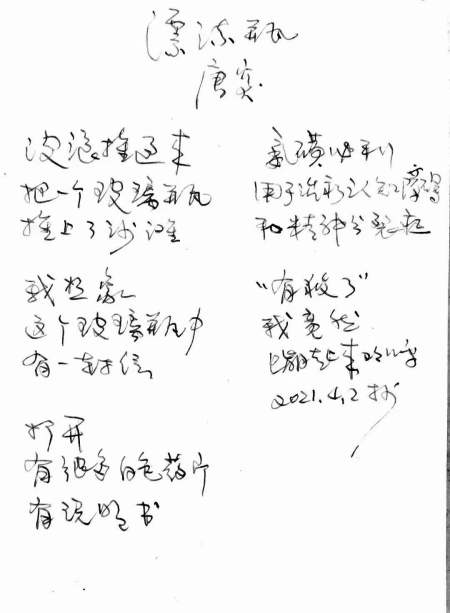 漂流瓶
唐突
波浪推过来
把一个玻璃瓶
推上了沙滩
我想象
这个玻璃瓶中
有一封信
打开
有很多白色药片
有说明书
氨磺必利
用于治疗认知障碍
和精神分裂症
“有救了”
我竟然
蹦起来吟唱
2021.4.2抄